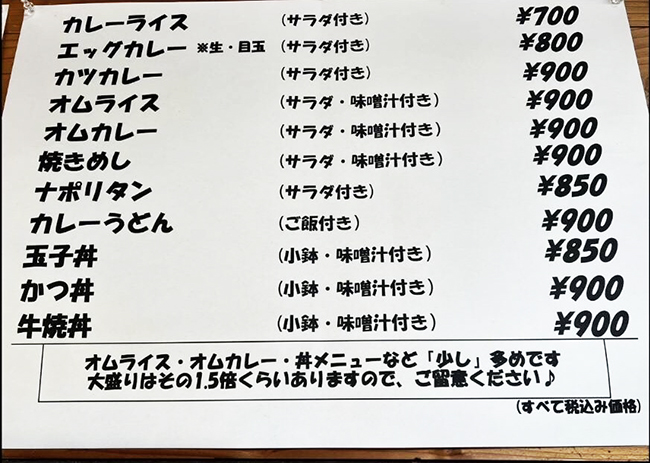 カレーライス (サラダ付き) ¥700
エッグカレー ※生・目玉 (サラダ付き) ¥800
カツカレー (サラダ付き) ¥900
オムライス (サラダ・味噌汁付き) ¥900
オムカレー (サラダ・味噌汁付き) ¥900
焼きめし (サラダ・味噌汁付き) ¥900
ナポリタン (サラダ付き) ¥850
カレーうどん (ご飯付き) ¥900
玉子丼 (小鉢・味噌汁付き) ¥850
かつ丼 (小鉢・味噌汁付き) ¥900
牛焼丼 (小鉢・味噌汁付き) ¥900
オムライス・オムカレー・丼メニューなど「少し」多めです
大盛りはその1.5倍くらいありますので、ご留意ください♪
(すべて税込み価格)